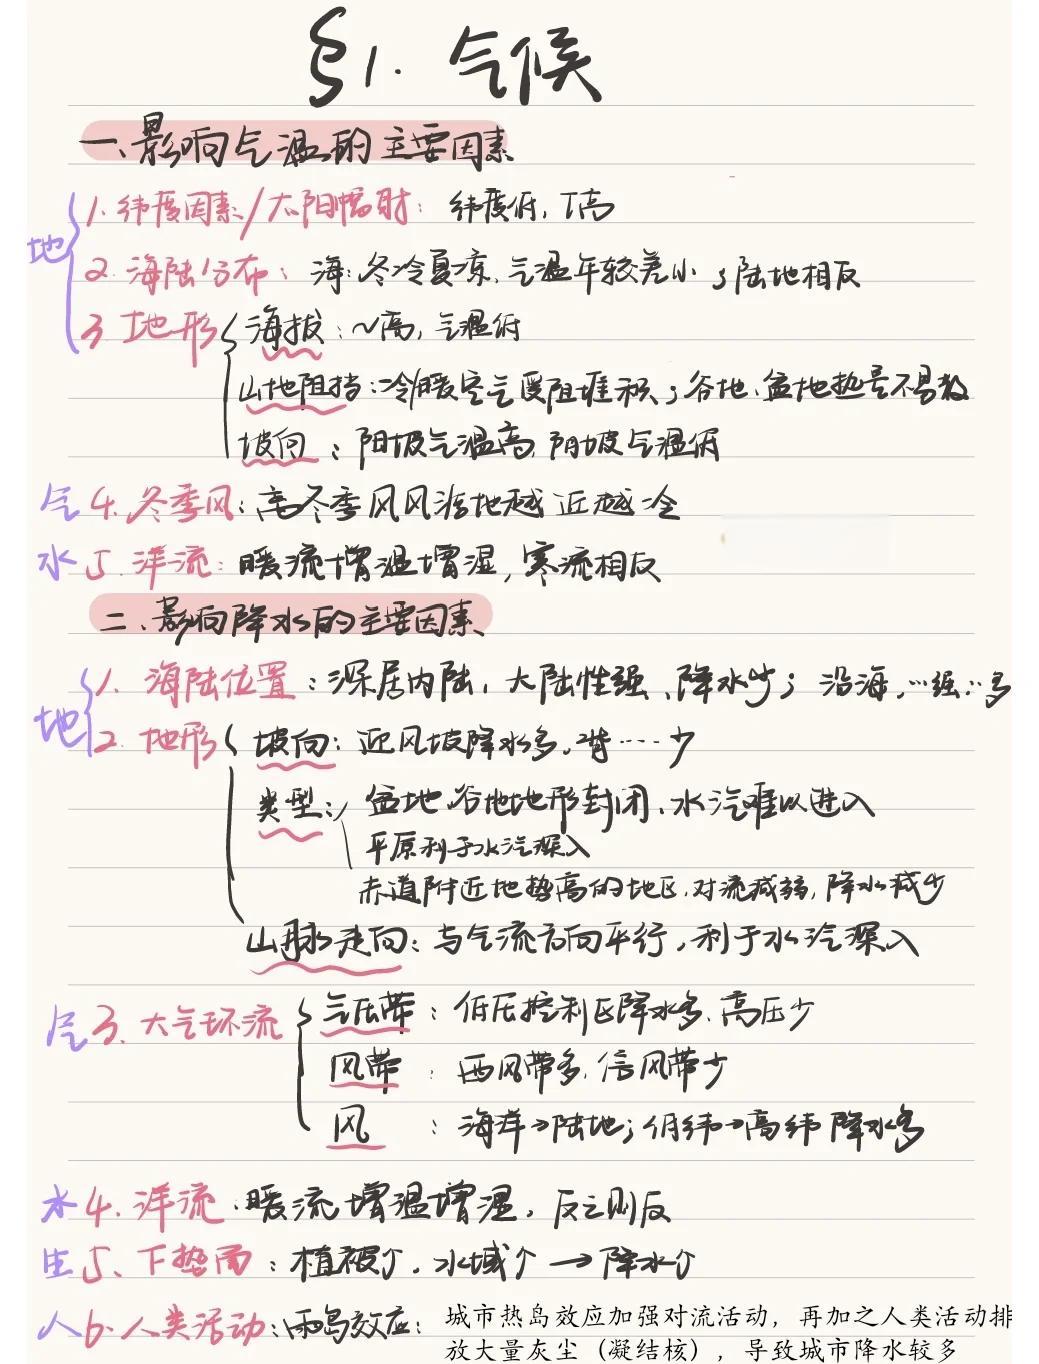 §1. 气候
一、影响气温的主要因素
地 1. 纬度因素/太阳辐射：纬度低，T高
2. 海陆分布：海：冬冷夏凉、气温年较差小；陆地相反
3 地形 海拔：~高，气温低
山地阻挡：冷/暖空气受阻堆积；谷地、盆地热量不易散
坡向：阳坡气温高，阴坡气温低
气 4. 冬季风：离冬季风风源地越近越冷
水 5. 洋流：暖流增温增湿，寒流相反
二、影响降水的主要因素
地 1. 海陆位置：深居内陆，大陆性强、降水少；沿海，…强…多
2. 地形 坡向：迎风坡降水多，背…少
类型：盆地、谷地地形封闭、水汽难以进入
平原利于水汽深入
赤道附近地势高的地区，对流减弱，降水减少
山脉走向：与气流方向平行，利于水汽深入
气 3. 大气环流 气压带：低压控制区降水多、高压少
风带：西风带多，信风带少
风：海洋→陆地；低纬→高纬 降水多
水 4. 洋流：暖流增温增湿，反之则反
生 5、下垫面：植被↑，水域↑→降水↑
人 6. 人类活动：雨岛效应：城市热岛效应加强对流活动，再加之人类活动排
放大量灰尘（凝结核），导致城市降水较多